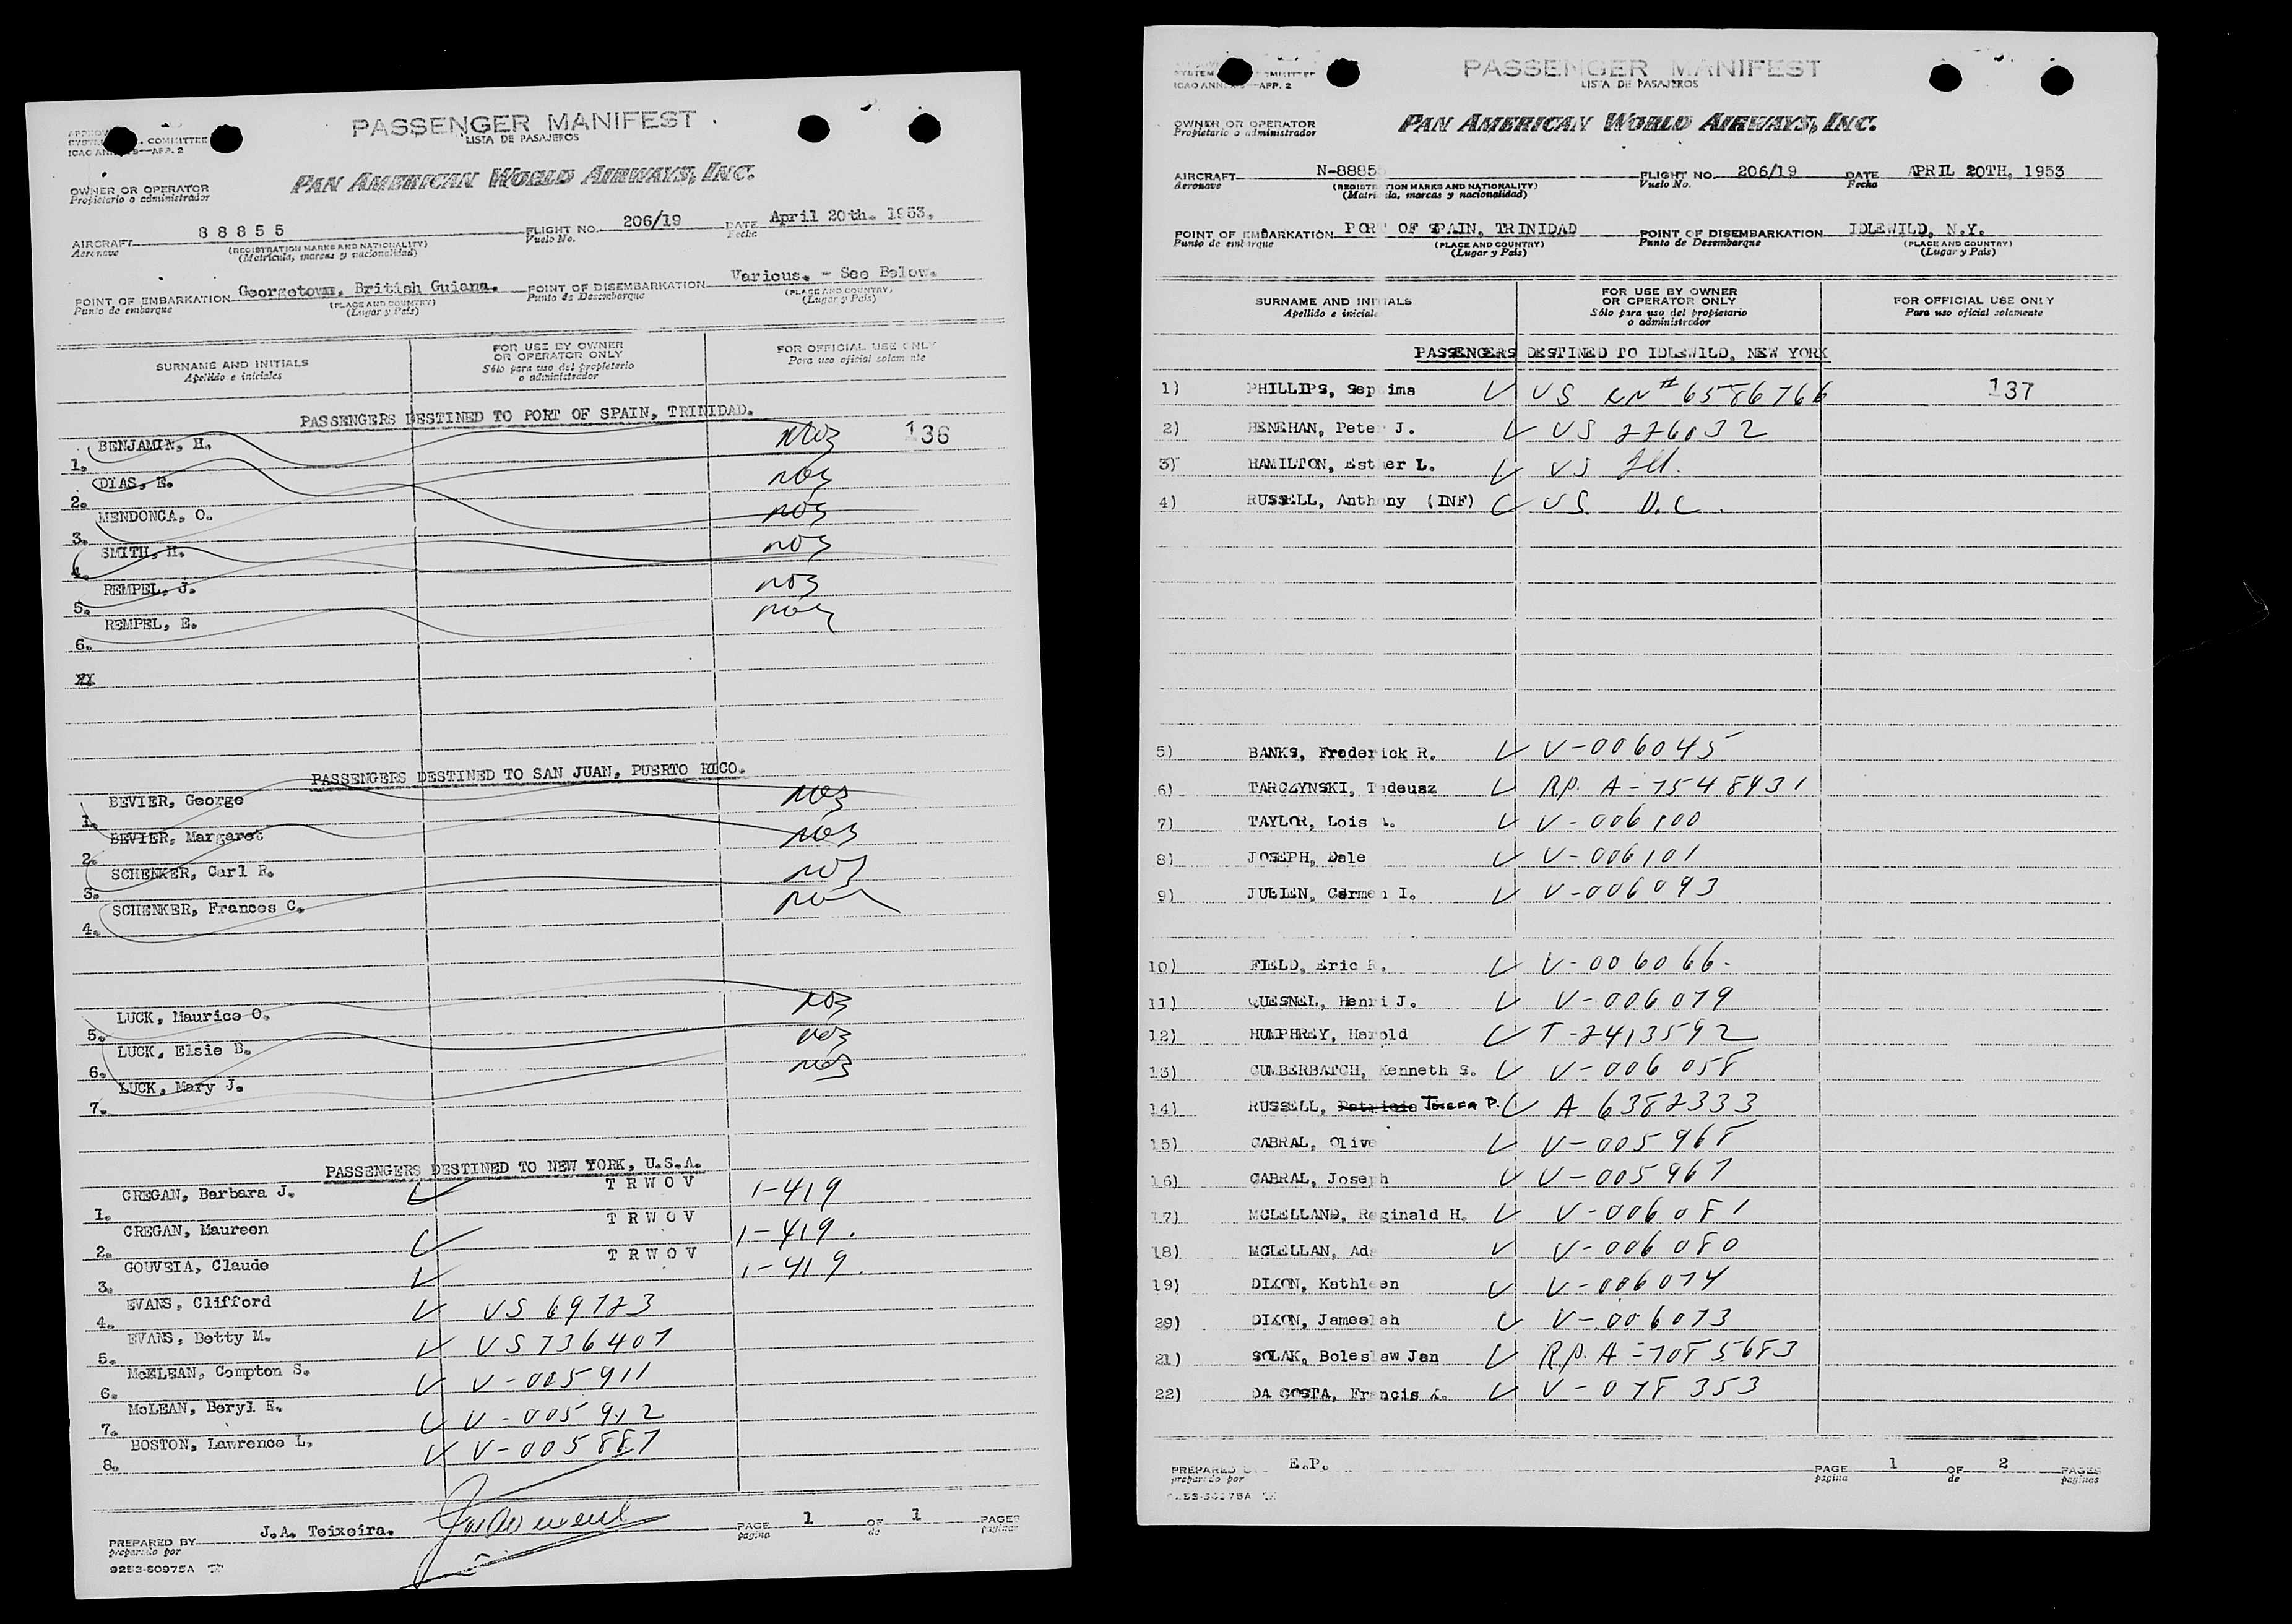 PASSENGER MANIFEST
LISTA DE PASAJEROS
COMMITTEE
ICAO ANNEX 9—APP. 2
PAN AMERICAN WORLD AIRWAYS, INC.
OWNER OR OPERATOR
Propietario o administrador
AIRCRAFT 88855 FLIGHT NO. 206/19 DATE April 20th. 1953.
Aeronave (REGISTRATION MARKS AND NATIONALITY) Vuelo No. Fecha
(Matricula, marcas y nacionalidad)
POINT OF EMBARKATION Georgetown, British Guiana. POINT OF DISEMBARKATION Various. - See Below.
Punto de embarque (PLACE AND COUNTRY) Punto de Desembarque (PLACE AND COUNTRY)
(Lugar y País) (Lugar y País)
SURNAME AND INITIALS FOR USE BY OWNER OR OPERATOR ONLY FOR OFFICIAL USE ONLY
Apellido e iniciales Sólo para uso del propietario o administrador Para uso oficial solamente
PASSENGERS DESTINED TO PORT OF SPAIN, TRINIDAD.
136
1. BENJAMIN, H. nos
2. DIAS, E. nos
3. MENDONCA, O. nos
4. SMITH, H. nos
5. REMPEL, J. nos
6. REMPEL, E. nos
PASSENGERS DESTINED TO SAN JUAN, PUERTO RICO.
1. BEVIER, George nos
2. BEVIER, Margaret nos
3. SCHENKER, Carl R. nos
4. SCHENKER, Frances C. nos
5. LUCK, Maurice O. nos
6. LUCK, Elsie B. nos
7. LUCK, Mary J. nos
PASSENGERS DESTINED TO NEW YORK, U.S.A.
1. CREGAN, Barbara J. TRWOV 1-419
2. CREGAN, Maureen TRWOV 1-419.
3. GOUVEIA, Claude TRWOV 1-419.
4. EVANS, Clifford US 69723
5. EVANS, Betty M. US 736407
6. McLEAN, Compton S. V-005911
7. McLEAN, Beryl E. V-005912
8. BOSTON, Lawrence L. V-005887
PREPARED BY J.A. Teixeira. PAGE 1 OF 1 PAGES
preparado por página de páginas
9253-60975A
PASSENGER MANIFEST
LISTA DE PASAJEROS
SYSTEM COMMITTEE
ICAO ANNEX 9—APP. 2
OWNER OR OPERATOR PAN AMERICAN WORLD AIRWAYS, INC.
Propietario o administrador
AIRCRAFT N-8885 FLIGHT NO. 206/19 DATE APRIL 20TH, 1953
Aeronave (REGISTRATION MARKS AND NATIONALITY) Vuelo No. Fecha
(Matricula, marcas y nacionalidad)
POINT OF EMBARKATION PORT OF SPAIN, TRINIDAD POINT OF DISEMBARKATION IDLEWILD, N.Y.
Punto de embarque (PLACE AND COUNTRY) Punto de Desembarque (PLACE AND COUNTRY)
(Lugar y País) (Lugar y País)
SURNAME AND INITIALS FOR USE BY OWNER OR OPERATOR ONLY FOR OFFICIAL USE ONLY
Apellido e iniciales Sólo para uso del propietario o administrador Para uso oficial solamente
PASSENGERS DESTINED TO IDLEWILD, NEW YORK
1) PHILLIPS, Septima US CN# 6586766 137
2) HENEHAN, Peter J. US 226032
3) HAMILTON, Esther L. US Ill.
4) RUSSELL, Anthony (INF) US D.C.
5) BANKS, Frederick R. V-006045
6) TARCZYNSKI, Tadeusz R.P. A-7548931
7) TAYLOR, Lois A. V-006100
8) JOSEPH, Dale V-006101
9) JULIEN, Carmen I. V-006093
10) FIELD, Eric R. V-006066-
11) QUESNEL, Henri J. V-006079
12) HUMPHREY, Harold T-2413592
13) CUMBERBATCH, Kenneth S. V-006058
14) RUSSELL, Patricia P. A 6382333
15) CABRAL, Olive V-005968
16) CABRAL, Joseph V-005967
17) MCLELLAND, Reginald H. V-006081
18) MCLELLAN, Ada V-006080
19) DIXON, Kathleen V-006074
20) DIXON, Jameelah V-006073
21) SOLAK, Boleslaw Jan R.P. A-7085683
22) DA COSTA, Francis X. V-078353
PREPARED BY E.P. PAGE 1 OF 2 PAGES
preparado por página de páginas